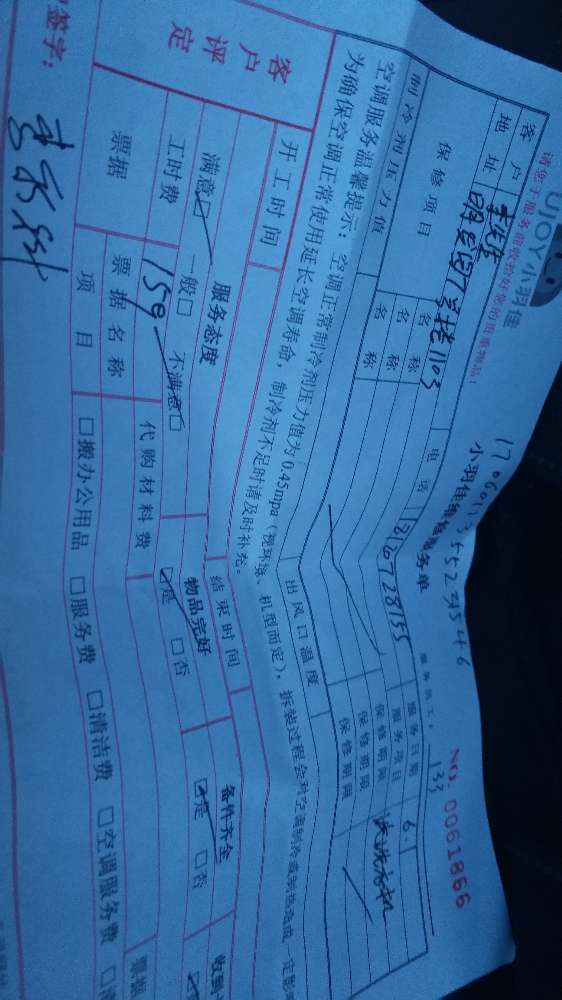 UJOY小羽佳
小羽佳维修服务单
NO: 0061866
请您于服务前收拾好您的贵重物品!
服务员工: 133
客户
地址
1103
电话
服务日期 6.1
服务项目 清洗衣机
保修项目
名称
保修期限
名称
保修期限
制冷剂压力值
名称
出风口温度
空调服务温馨提示: 空调正常制冷剂压力值为0.45mpa(视环境、机型而定), 拆装过程会对空调制冷或制热造成一定影
为确保空调正常使用延长空调寿命, 制冷剂不足时请及时补充。
开工时间
结束时间
客户评定
服务态度
物品完好
备件齐全
收到
满意□ 一般□ 不满意□
□是 □否
□是 □否
工时费
159
代购材料费
票据
票据名称
项目
□搬办公用品 □服务费 □清洁费 □空调服务费
票据
签字: